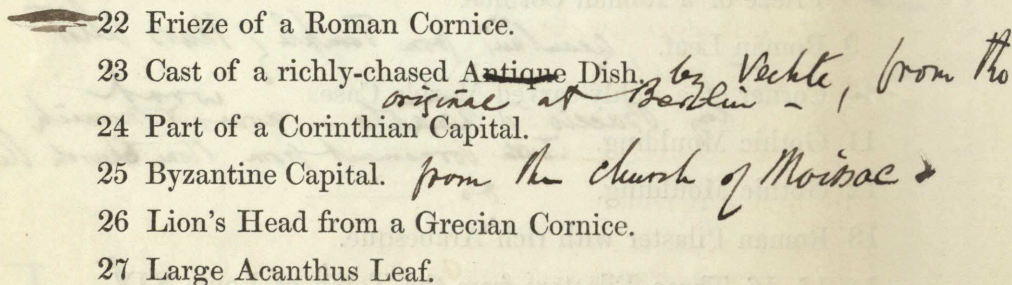 22 Frieze of a Roman Cornice.
23 Cast of a richly-chased Antique Dish. by Vechte, from the
original at Berlin -
24 Part of a Corinthian Capital.
25 Byzantine Capital. from the church of Moissac
26 Lion's Head from a Grecian Cornice.
27 Large Acanthus Leaf.